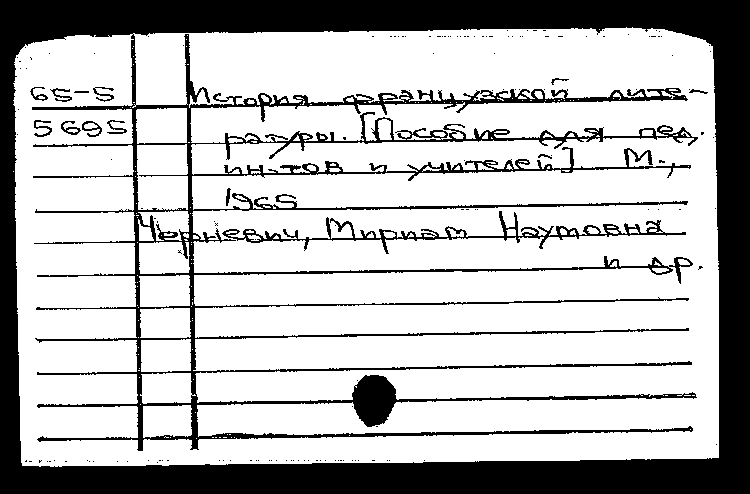 65-5 История французской лите-
5695 ратуры. [Пособие для пед.
ин-тов и учителей] М.,
1965
Черневич, Мириам Наумовна
и др.